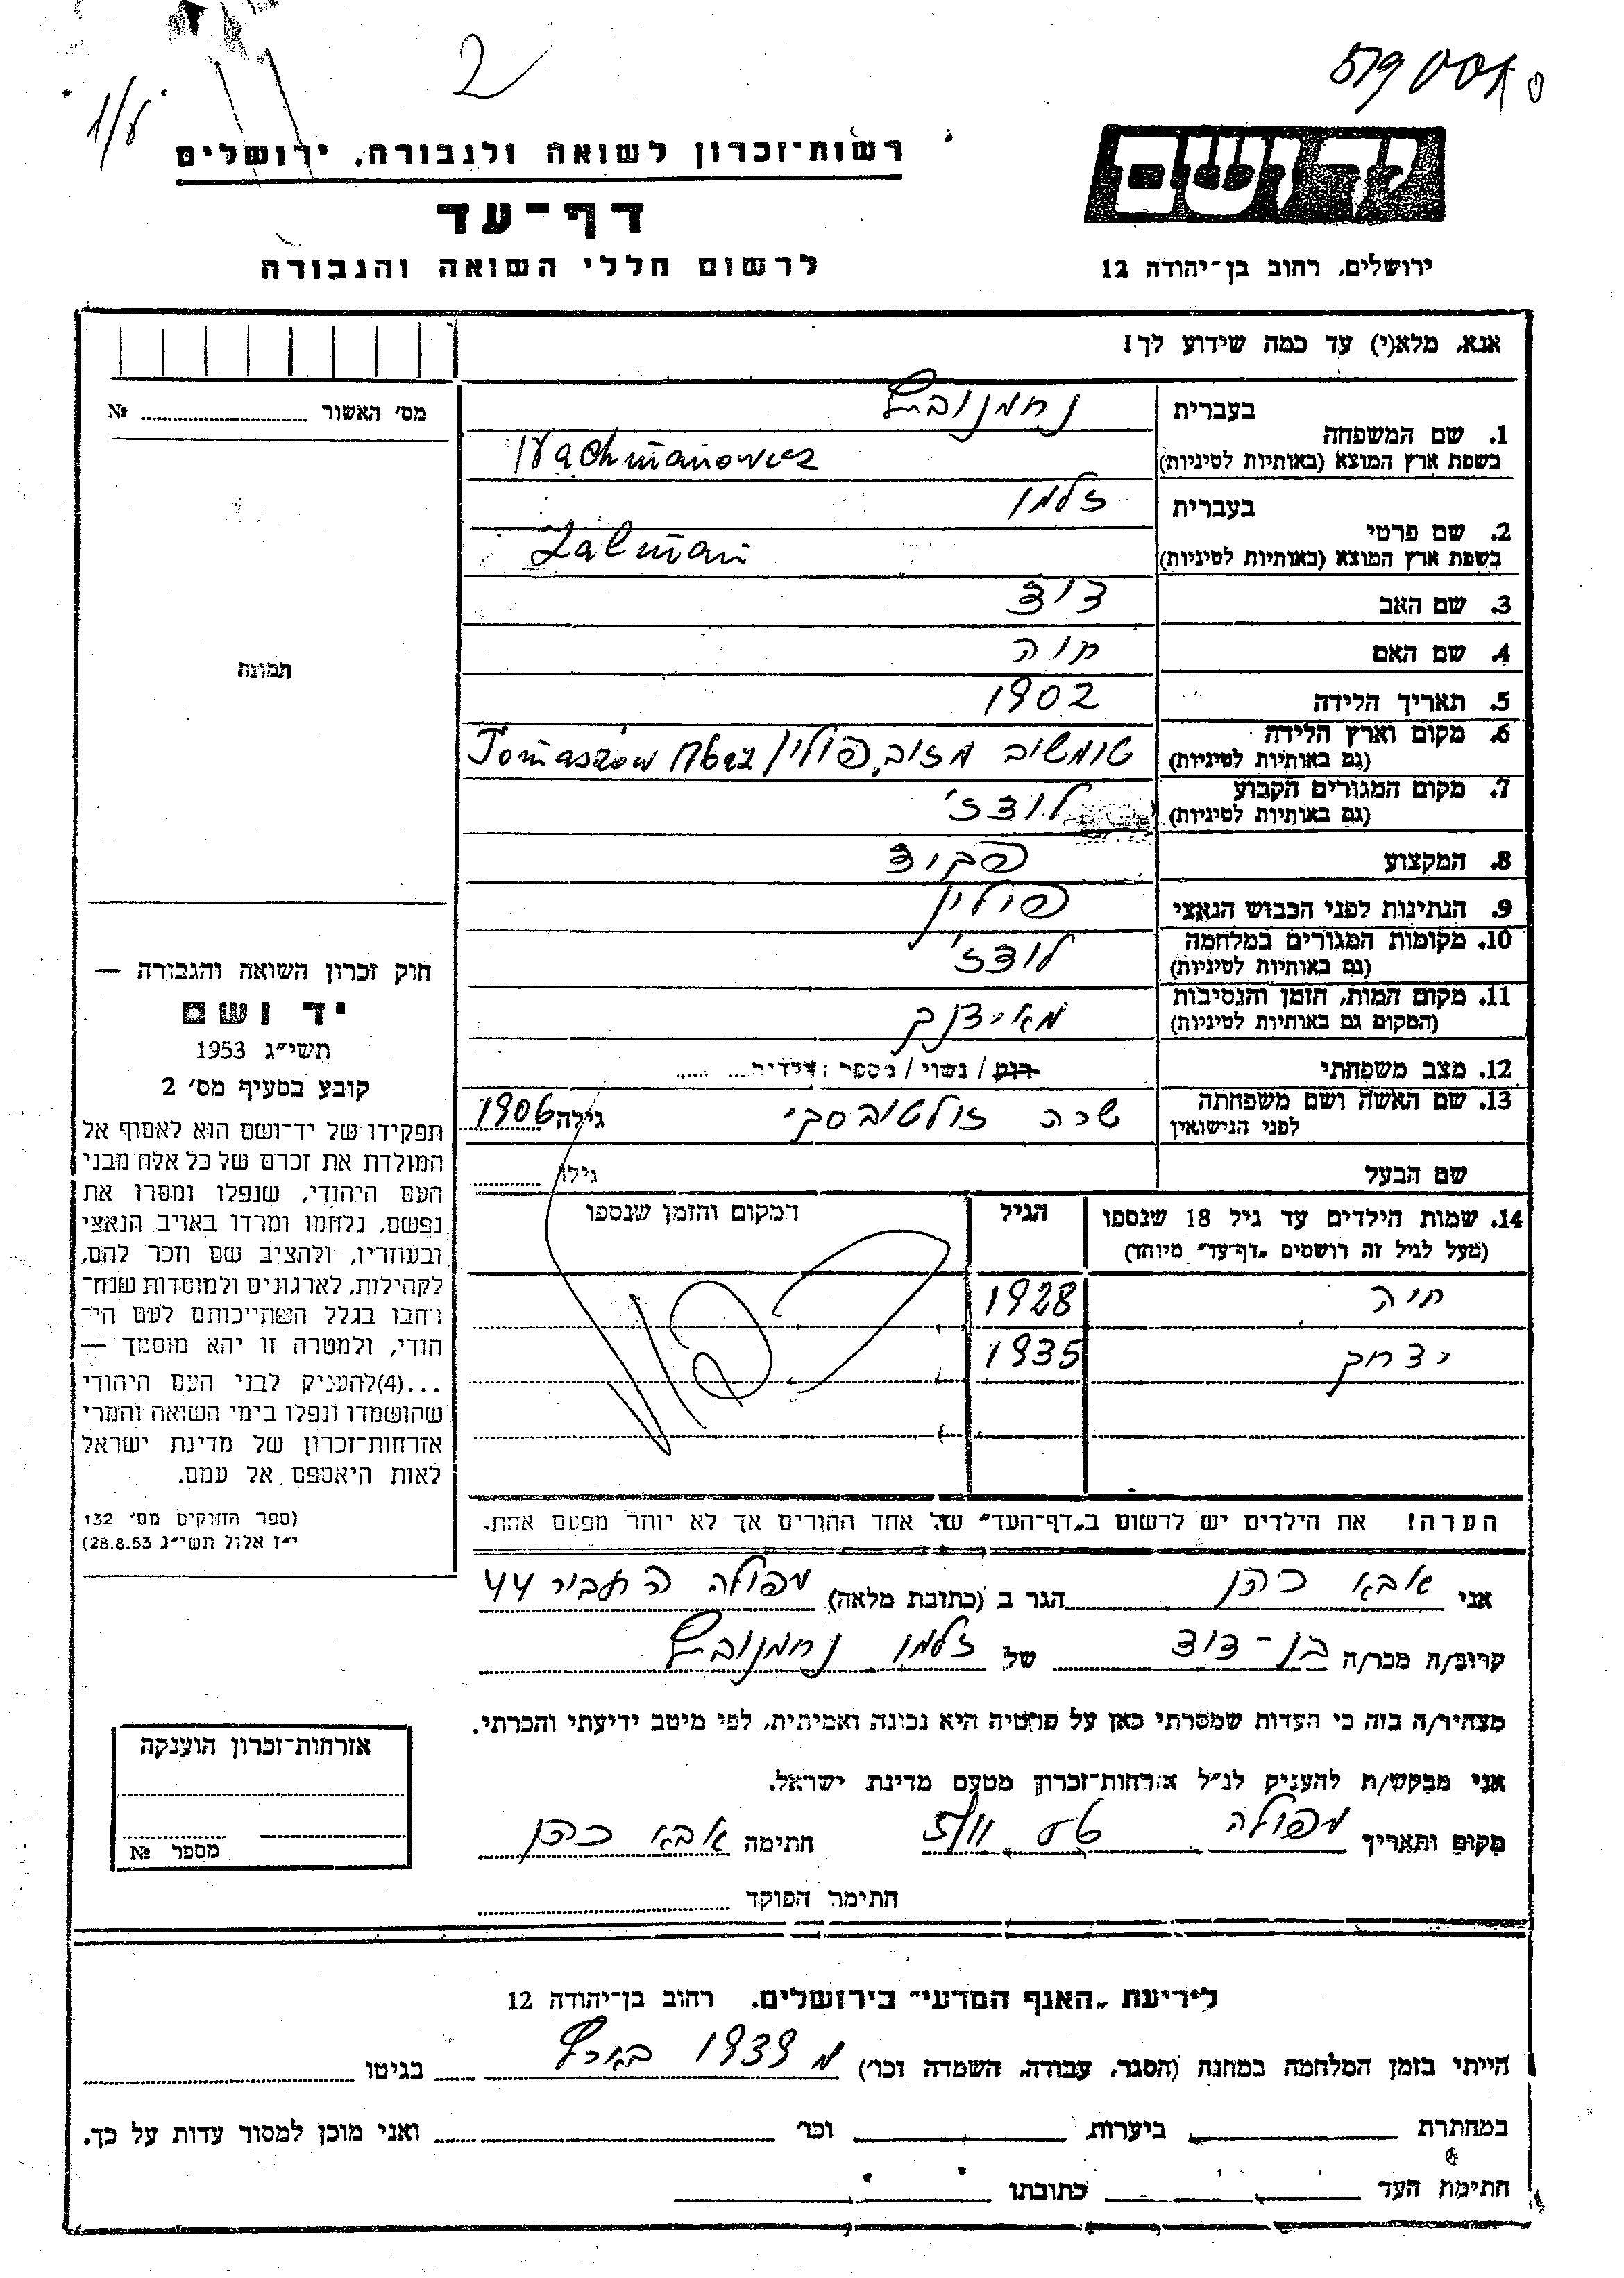 2
1/8
רשות-זכרון לשואה ולגבורה, ירושלים
דף-עד
לרשום חללי השואה והגבורה
יד ושם
ירושלים, רחוב בן-יהודה 12
אנא, מלא(י) עד כמה שידוע לך!
מס׳ האשור № 
1. שם המשפחה בעברית נחמנוביץ
בשפת ארץ המוצא (באותיות לטיניות) Nachmanowicz
2. שם פרטי בעברית זלמן
בשפת ארץ המוצא (באותיות לטיניות) Zalman
3. שם האב דוד
4. שם האם חוה
5. תאריך הלידה 1902
6. מקום וארץ הלידה (גם באותיות לטיניות) טומשוב מזוב, פולין / Tomaszów Maz
7. מקום המגורים הקבוע (גם באותיות לטיניות) לודז׳
8. המקצוע פקיד
9. הנתינות לפני הכבוש הנאצי פולין
10. מקומות המגורים במלחמה (גם באותיות לטיניות) לודז׳
11. מקום המות, הזמן והנסיבות (המקום גם באותיות לטיניות) מאידנק
12. מצב משפחתי רווק / נשוי / מספר ילדים
13. שם האשה ושם משפחתה לפני הנישואין שרה גילה 1906
שם הבעל גילו
14. שמות הילדים עד גיל 18 שנספו (מעל לגיל זה רושמים „דף-עד״ מיוחד)
הגיל
המקום והזמן שנספו
חיה 1928
יצחק 1935
הערה! את הילדים יש לרשום ב„דף-העד״ של אחד ההורים אך לא יותר מפעם אחת.
תמונה
חוק זכרון השואה והגבורה —
יד ושם
תשי״ג 1953
קובע בסעיף מס׳ 2
תפקידו של יד-ושם הוא לאסוף אל
המולדת את זכרם של כל אלה מבני
העם היהודי, שנפלו ומסרו את
נפשם, נלחמו ומרדו באויב הנאצי
ובעוזריו, ולהציב שם וזכר להם,
לקהילות, לארגונים ולמוסדות שנח-
רבו בגלל השתייכותם לעם הי-
הודי, ולמטרה זו יהא מוסמך —
...(4)להעניק לבני העם היהודי
שהושמדו ונפלו בימי השואה והמרי
אזרחות-זכרון של מדינת ישראל
לאות היאספם אל עמם.
(ספר החוקים מס׳ 132
י״ז אלול תשי״ג 28.8.53)
אני אבא כהן הגר ב (כתובת מלאה) עפולה התבור 44
קרוב/ה מכר/ה בן-דוד של זלמן נחמנוביץ
מצהיר/ה בזה כי העדות שמסרתי כאן על פרטיה היא נכונה ואמיתית, לפי מיטב ידיעתי והכרתי.
אני מבקש/ת להעניק לנ״ל אזרחות-זכרון מטעם מדינת ישראל.
מקום ותאריך עפולה חתימה אבא כהן
חתימת הפוקד
אזרחות-זכרון הוענקה
מספר №
לידיעת „האגף המדעי״ בירושלים, רחוב בן-יהודה 12
הייתי בזמן המלחמה במחנה (הסגר, עבודה, השמדה וכר׳) מ 1939 בארץ בגיטו
במחתרת ביערות וכר׳ ואני מוכן למסור עדות על כך.
חתימת העד כתובתו